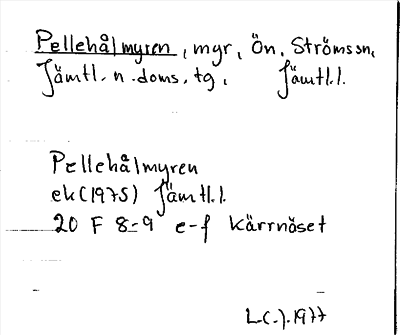 Pellehålmyren, myr, Ön, Ströms sn,
Jämtl. n. doms. tg, Jämtl.l.
Pellehålmyren
ek (1975) Jämtl.l.
20 F 8-9 e-f Kärrnäset
L.(-).1977